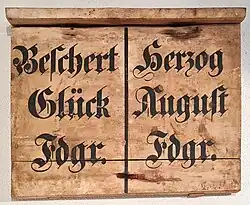 Beschert
Glück
Fdgr.
Herzog
August
Fdgr.